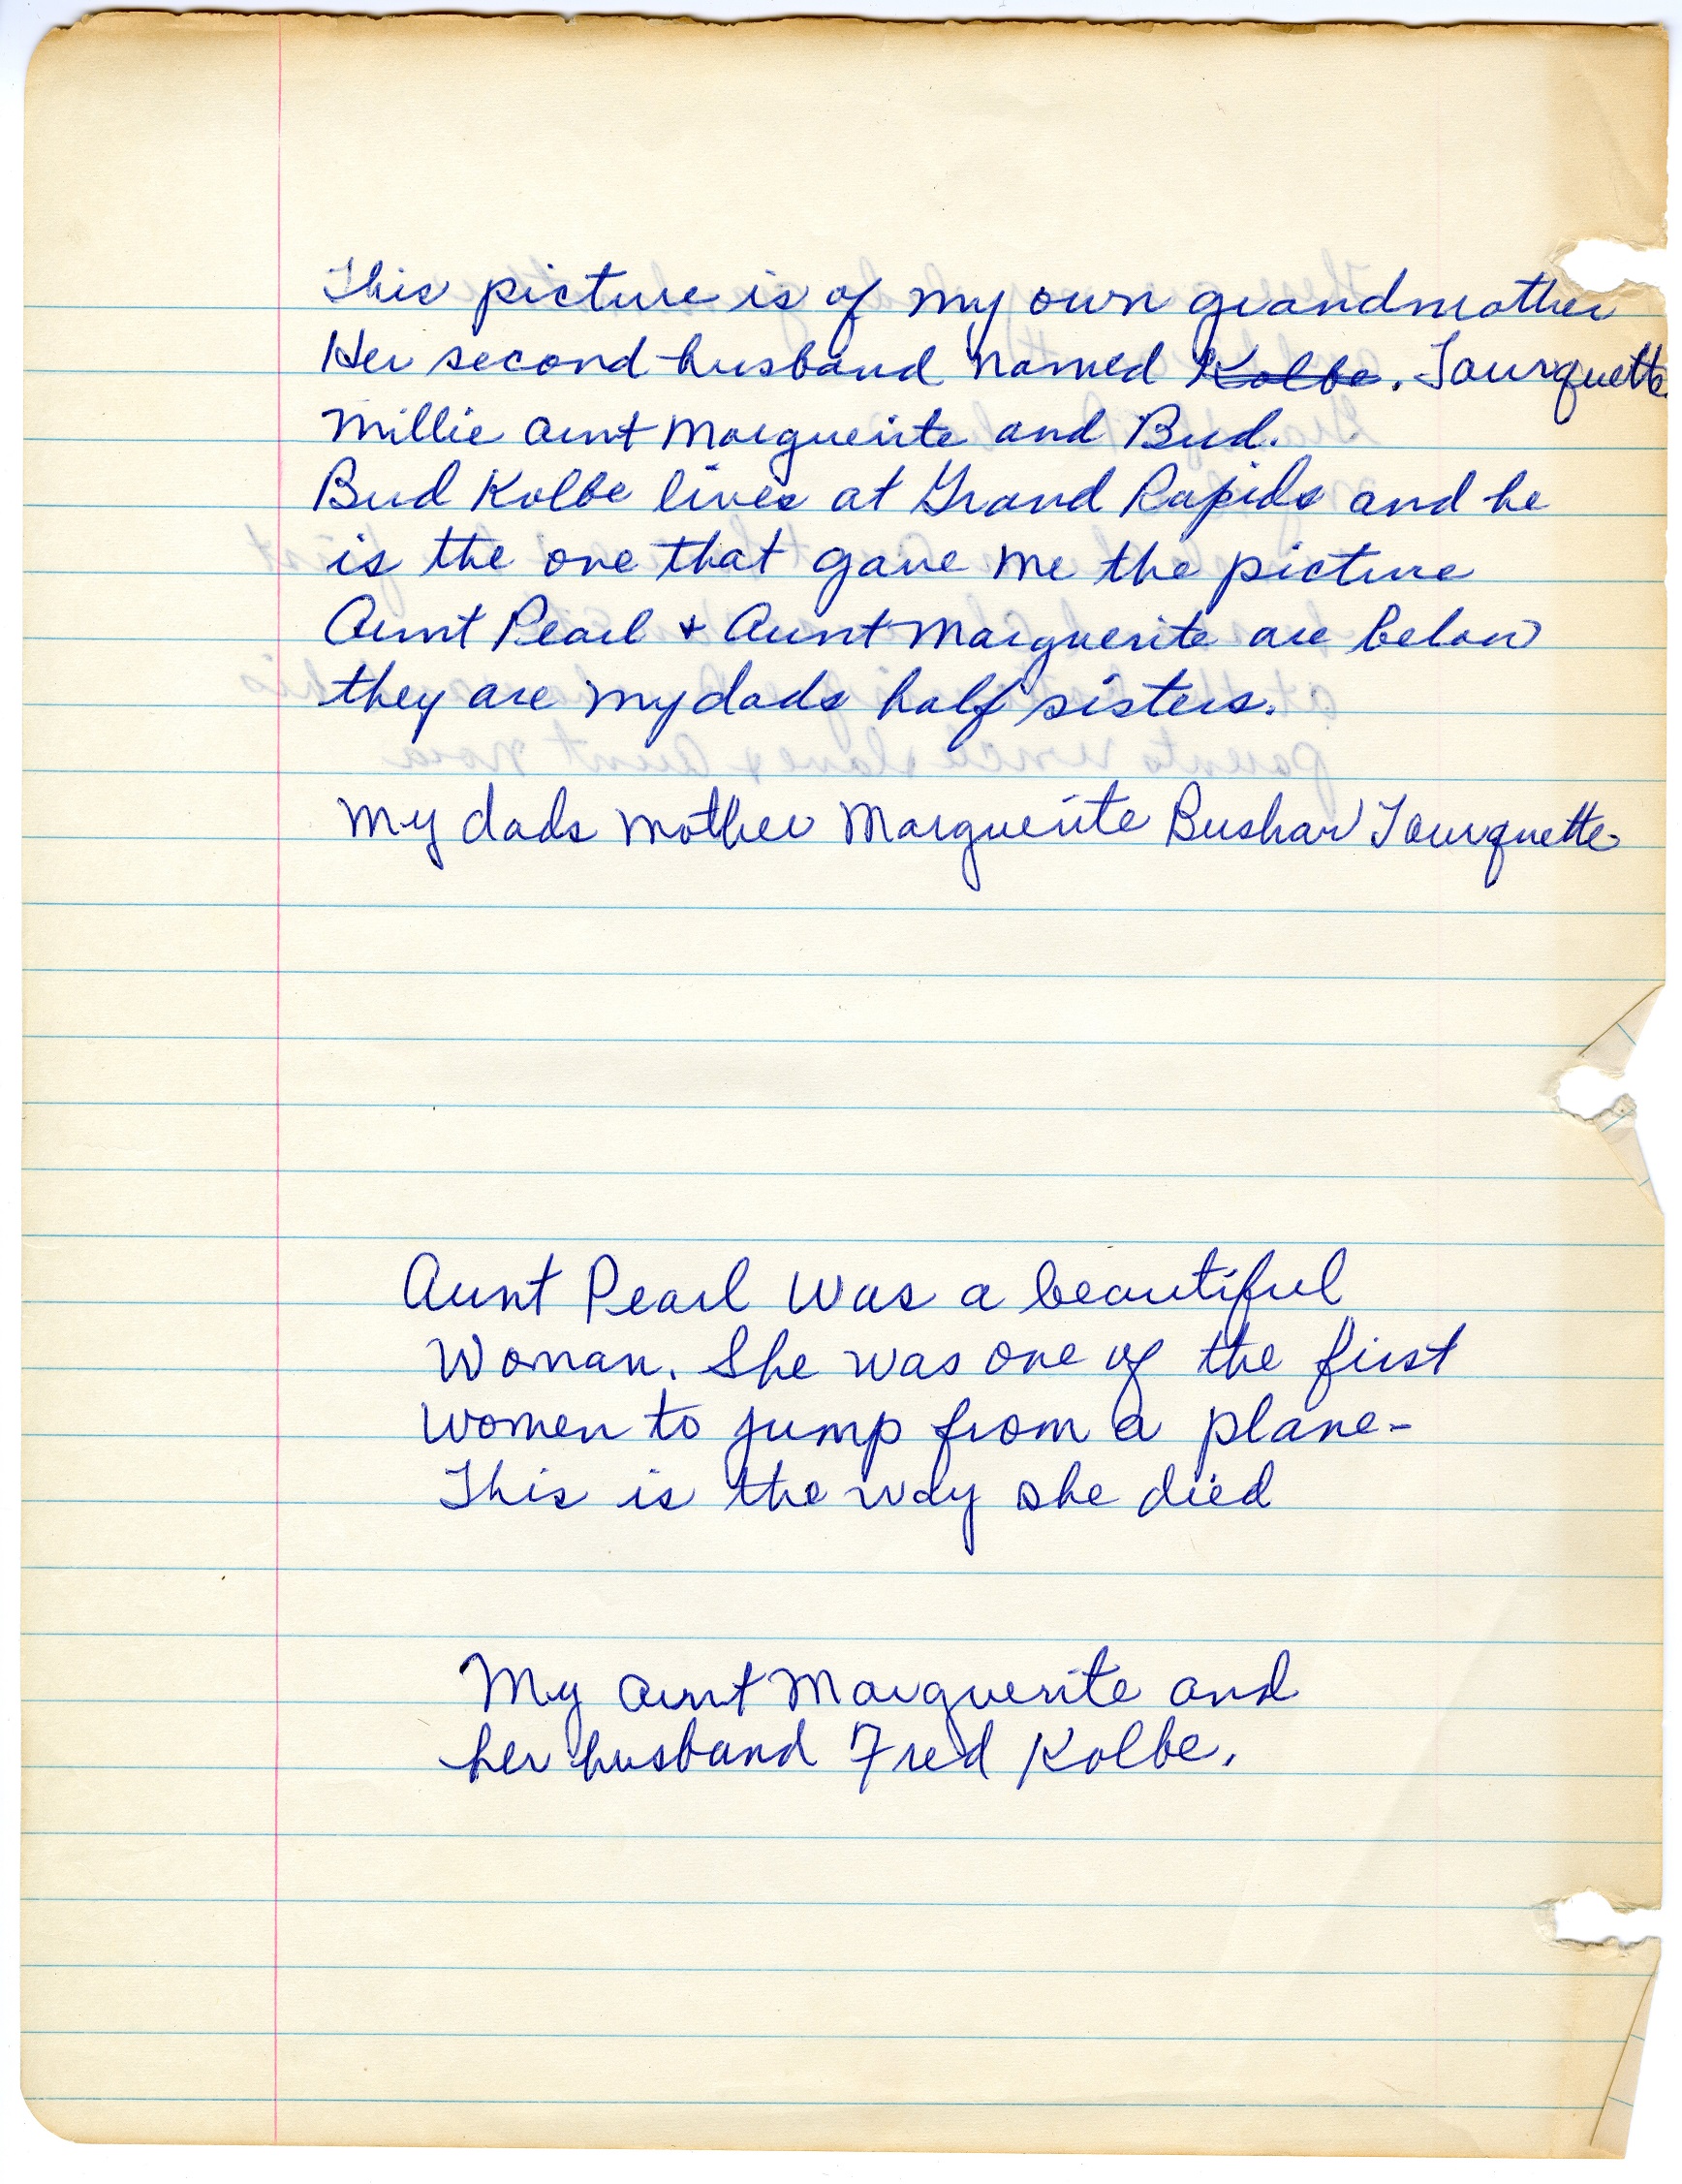 This picture is of my own grandmother
Her second husband named Kolbe. Tourquette
Millie Aunt Marguerite and Bud.
Bud Kolbe lives at Grand Rapids and he
is the one that gave me the picture
Aunt Pearl & Aunt Marguerite are below
they are my dads half sisters.
My dads mother Marguerite Bushaw Tourquette
Aunt Pearl was a beautiful
Woman. She was one of the first
women to jump from a plane-
This is the way she died
My Aunt Marguerite and
her husband Fred Kolbe.